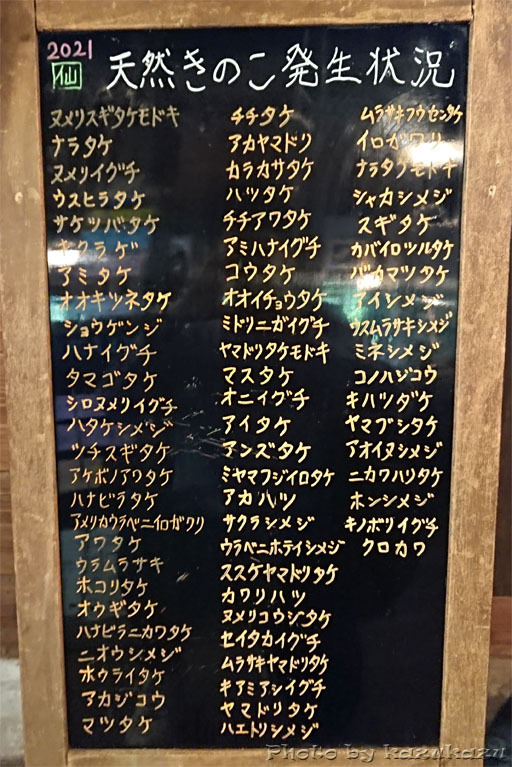 2021
仙
天然きのこ発生状況
ヌメリスギタケモドキ
ナラタケ
ヌメリイグチ
ウスヒラタケ
サケツバタケ
キクラゲ
アミタケ
オオキツネタケ
ショウゲンジ
ハナイグチ
タマゴタケ
シロヌメリイグチ
ハタケシメジ
ツチスギタケ
アケボノアワタケ
ハナビラタケ
アメリカウラベニイロガワリ
アワタケ
ウラムラサキ
ホコリタケ
オウギタケ
ハナビラニカワタケ
ニオウシメジ
ホウライタケ
アカジコウ
マツタケ
チチタケ
アカヤマドリ
カラカサタケ
ハツタケ
チチアワタケ
アミハナイグチ
コウタケ
オオイチョウタケ
ミドリニガイグチ
ヤマドリタケモドキ
マスタケ
オニイグチ
アイタケ
アンズタケ
ミヤマフジイロタケ
アカハツ
サクラシメジ
ウラベニホテイシメジ
ススケヤマドリタケ
カワリハツ
ヌメリコウジタケ
セイタカイグチ
ムラサキヤマドリタケ
キアミアシイグチ
ヤマドリタケ
ハエトリシメジ
ムラサキフウセンタケ
イロガワリ
ナラタケモドキ
シャカシメジ
スギタケ
カバイロツルタケ
バカマツタケ
アイシメジ
ウスムラサキシメジ
ミネシメジ
コノハジコウ
キハツダケ
ヤマブシタケ
アオイヌシメジ
ニカワハリタケ
ホンシメジ
キノボリイグチ
クロカワ
Photo by kazukazu